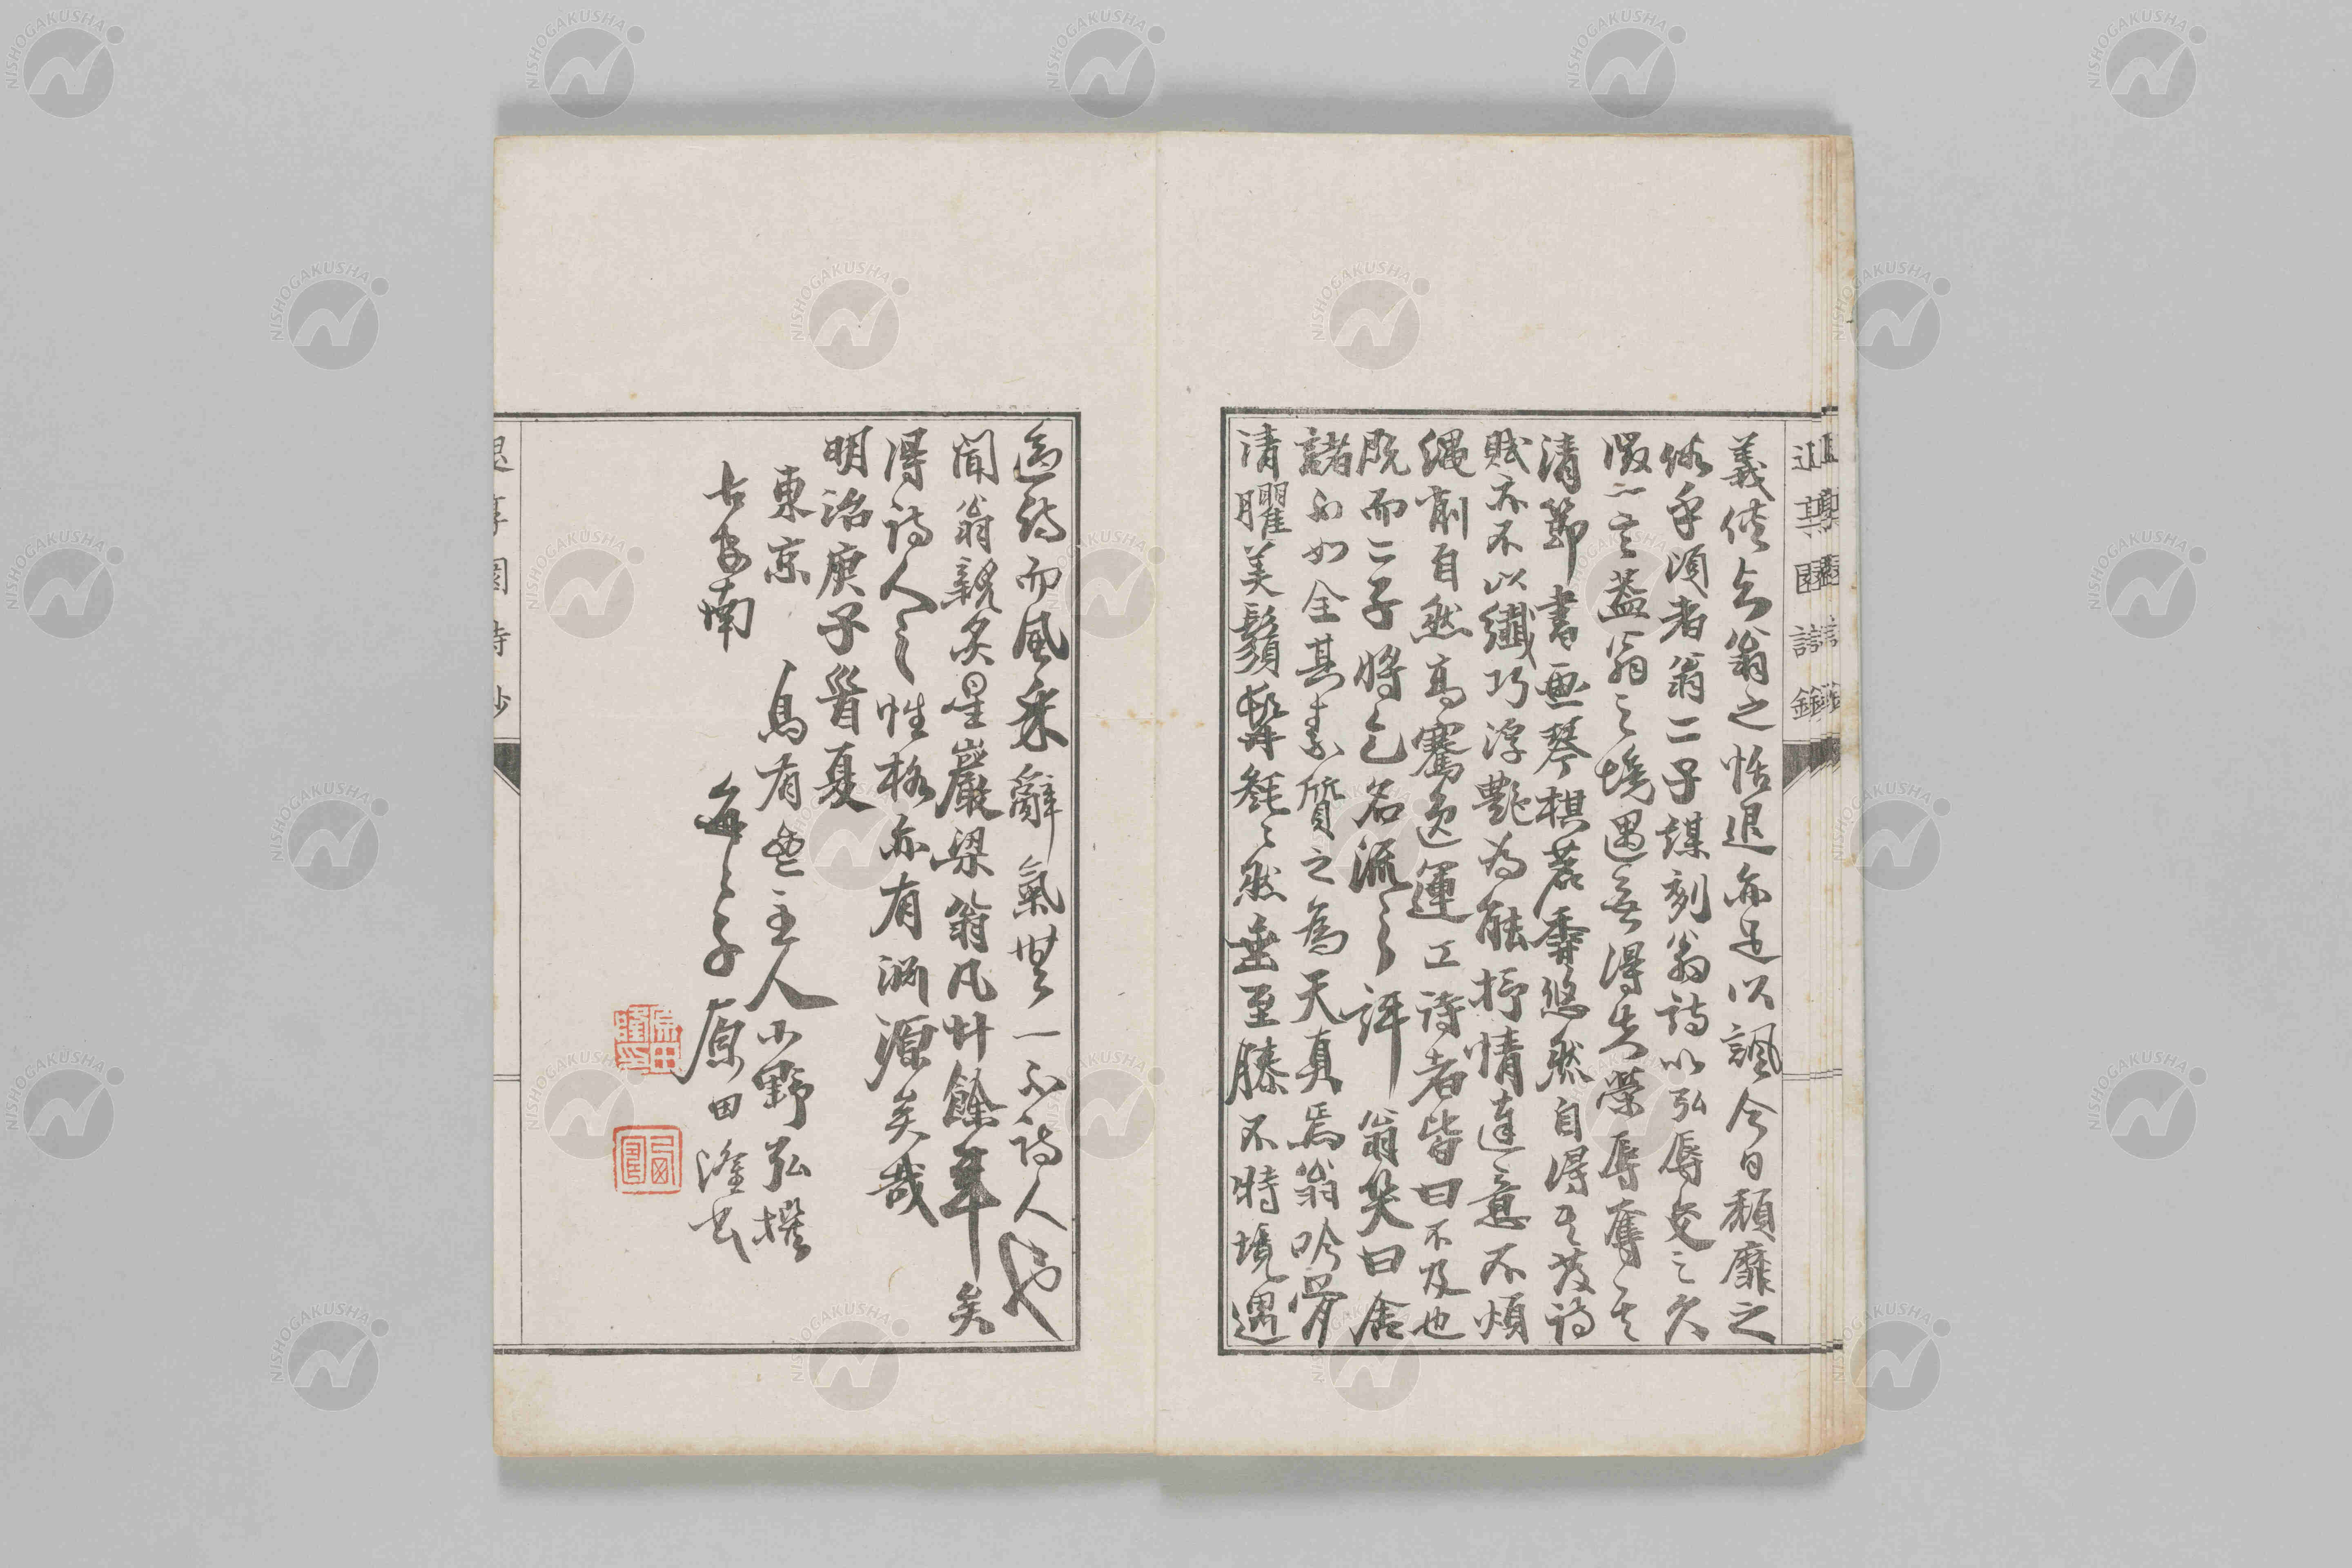 義使氣翁之恬退亦足以諷今日頽靡之
俗乎須者翁二子謀刻翁詩以弘辱交之久
徴一言蓋翁之境遇無得失榮辱奪其
清節書画琴棋茗香悠然自得其發詩
賦亦不以纖巧浮艶為能抒情達意不煩
繩削自然高騫逸運工詩者皆曰不及也
既而二子將乞名流之評翁笑曰舍
諸不如全其素質之為天真焉翁吟骨
清臞美鬚髯毿々然垂至膝不特境遇
逸詩而風采辭氣無一不詩人也
聞翁親炙星巖梁翁凡廿餘年矣
得詩人之性格亦有淵源矣哉
明治庚子首夏
東京 烏有無主人小野弘撰
古安南 每々子 原田隆書
退享園詩鈔
NISHOGAKUSHA